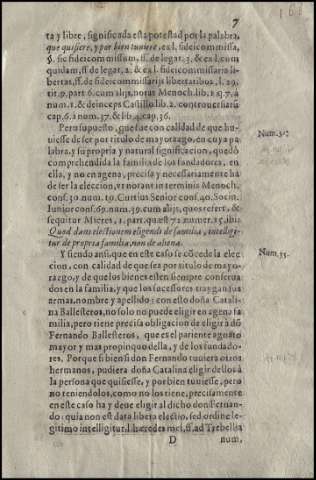 7
ta y libre, significada esta potestad por la palabra,
que quisiere, y por bien tuuiere, ex l. fideicommissa,
§. sic fideicommissum, ff. de legat. 3. & ex l. cum
quidam, ff. de legat. 2. & ex l. fideicommissaria li-
bertas, ff. de fideicommissarijs libertatibus, l. 29.
tit. 9. part. 6. cum alijs, notat Menoch. lib. 2. §. 7. à
num. 1. & deinceps Castillo lib. 2. controuersiarū
cap. 6. à num. 37. & lib. 4. cap. 36.
Pero supuesto, que fue con calidad de que hu-
uiesse de ser por titulo de mayorazgo, en cuya pa-
labra, y su propria y natural significacion, quedò
comprehendida la familia de los fundadores, en
ella, y no en agena, precisa y necessariamente ha
de ser la eleccion, vt notant in terminis Menoch.
cons. 30. num. 19. Curtius Senior cons. 40. Socin.
Iunior cons. 69. num. 19. cum alijs, quos refert, &
sequitur Mieres, 1. part. quæst. 7. numer. 15. ibi:
Quod dans electionem eligendi de familia, intelligi-
tur de propria familia, non de aliena.
Num. 34.
Y siendo ansi, que en este caso se cōcede la elec-
cion, con calidad de que sea por titulo de mayo-
razgo, y de que los bienes esten siempre conserua-
dos en la familia, y que los sucessores traygan sus
armas, nombre y apellido; con esto doña Catali-
na Ballesteros, no solo no puede eligir en agena fa-
milia, pero tiene precisa obligacion de eligir à dō
Fernando Ballesteros, que es el pariente agusto
mayor y mas propinquo della, y de los fundado-
res. Porque si bien si don Fernando tuuiera otros
hermanos, pudiera doña Catalina eligir dellos à
la persona que quisiesse, y por bien tuuiesse, pero
no teniendolos, como no los tiene, precisamente
en este caso ha y deue eligir al dicho don Fernan-
do: quia non est data libera electio, sed ordine le-
gitimo intelligitur, l. hæredes mei, ff. ad Trebellia
Num. 35.
D
num,